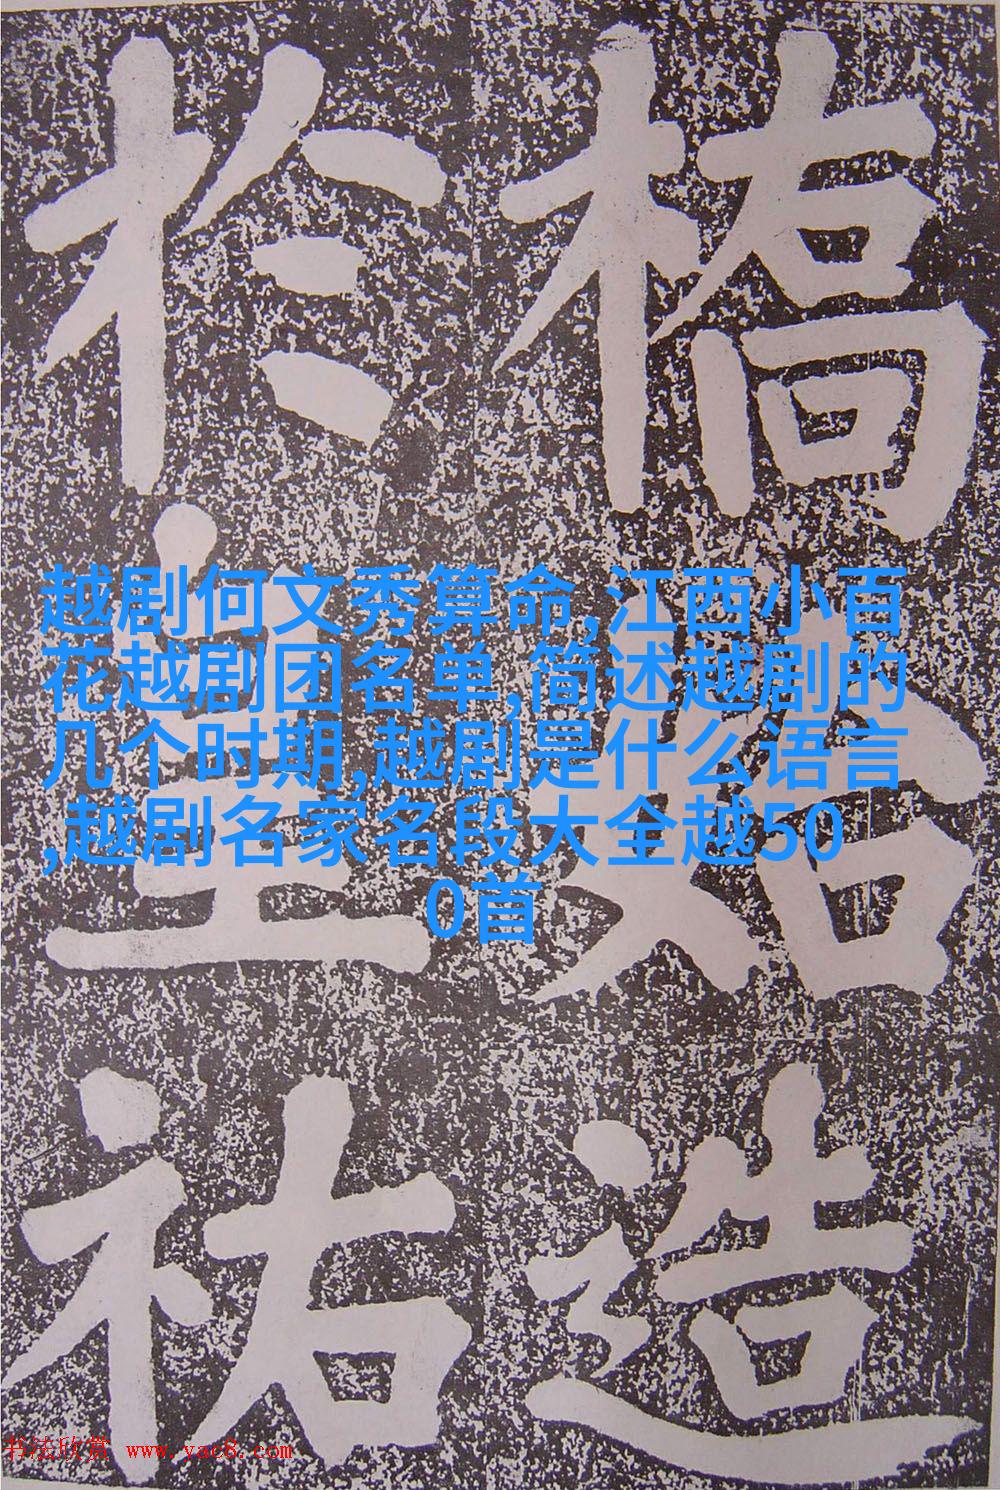 橋始造
於皇祐
越剧何文秀算命,江西小百
花越剧团名单,简述越剧的
几个时期,越剧是什么语言
,越剧名家名段大全越50
0首
书法欣赏 www.yac8.com